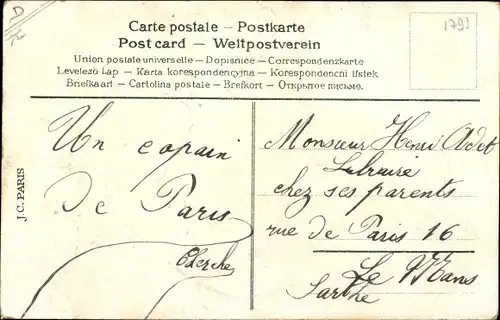 D
1793
Carte postale – Postkarte
Post card – Weltpostverein
Union postale universelle – Dopisnice – Correspondenzkarte
Levelező Lap – Karta korespondencyjna – Korespondencni lístek
Briefkaart – Cartolina postale – Brefkort – Открытое письмо.
Un copain
de Paris
Cherche
Monsieur Henri Adet
Libraire
chez ses parents
rue de Paris 16
Le Mans
Sarthe
J.C. PARIS